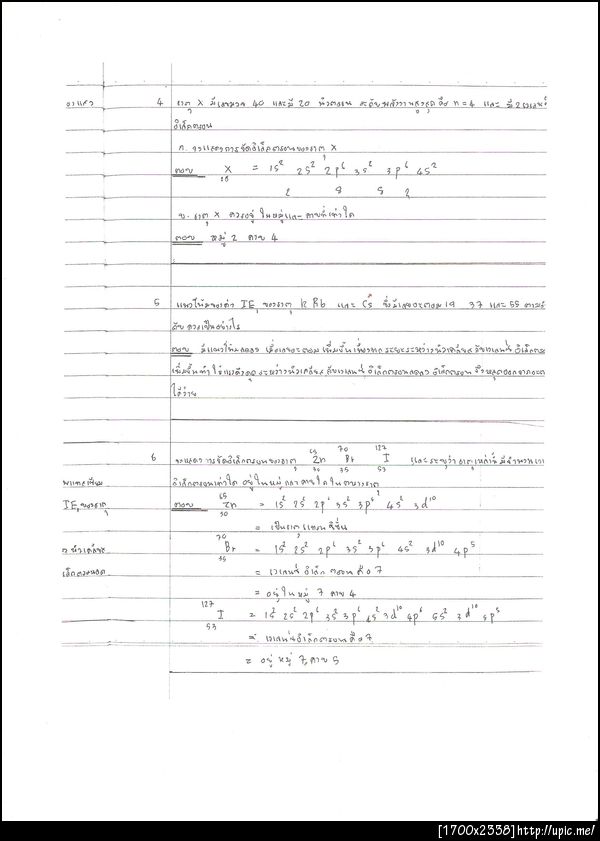 4 ธาตุ X มีเลขมวล 40 และมี 20 นิวตรอน ระดับพลังงานสูงสุด คือ n = 4 และ มี 2 เวเลนซ์
อิเล็กตรอน
ก. จงแสดงการจัดอิเล็กตรอนของธาตุ X
ตอบ X = 1s² 2s² 2p⁶ 3s² 3p⁶ 4s²
20
2 8 8 2
ข. ธาตุ X ควรอยู่ในหมู่และคาบที่เท่าใด
ตอบ หมู่ 2 คาบ 4
5 แนวโน้มของค่า IE₁ ของธาตุ K Rb และ Cs ซึ่งมีเลขอะตอม 19 37 และ 55 ตามลำ
ดับ ควรเป็นอย่างไร
ตอบ มีแนวโน้มลดลง เมื่อเลขอะตอมเพิ่มขึ้น เนื่องจาก ระยะระหว่างนิวเคลียส กับเวเลนซ์อิเล็กตร
เพิ่มขึ้นทำให้แรงดึงดูดระหว่างนิวเคลียสกับเวเลนซ์อิเล็กตรอนลดลง อิเล็กตรอนจึงหลุดออกจากอะต
ได้ง่าย
6 จงแสดงการจัดอิเล็กตรอนของธาตุ ⁶⁵₃₀Zn ⁷⁰₃₅Br ¹²⁷₅₃I และระบุว่าธาตุเหล่านี้มีจำนวนเว
อิเล็กตรอนเท่าใด อยู่ในหมู่ คาบใดในตารางธาตุ
IE₁ ของธาตุ ตอบ ⁶⁵₃₀Zn = 1s² 2s² 2p⁶ 3s² 3p⁶ 4s² 3d¹⁰
= เป็นธาตุแทรนซิชัน
นิวเคลียส ⁷⁰₃₅Br = 1s² 2s² 2p⁶ 3s² 3p⁶ 4s² 3d¹⁰ 4p⁵
= เวเลนซ์อิเล็กตรอนคือ 7
= อยู่ในหมู่ 7 คาบ 4
¹²⁷₅₃I = 1s² 2s² 2p⁶ 3s² 3p⁶ 4s² 3d¹⁰ 4p⁶ 5s² 3d¹⁰ 5p⁵
= เวเลนซ์อิเล็กตรอนคือ 7
= อยู่ หมู่ 7, คาบ 5
[1700x2338]http://upic.me/